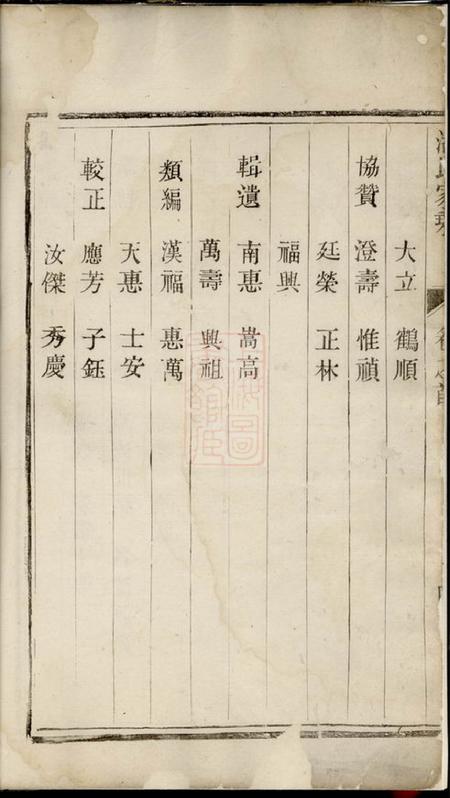 大立 鶴順
協贊 澄壽 惟禎
廷榮 正林
福興
輯遺 南惠 嵩高
萬壽 興祖
類編 漢福 惠萬
天惠 士安
較正 應芳 子鈺
汝傑 秀慶